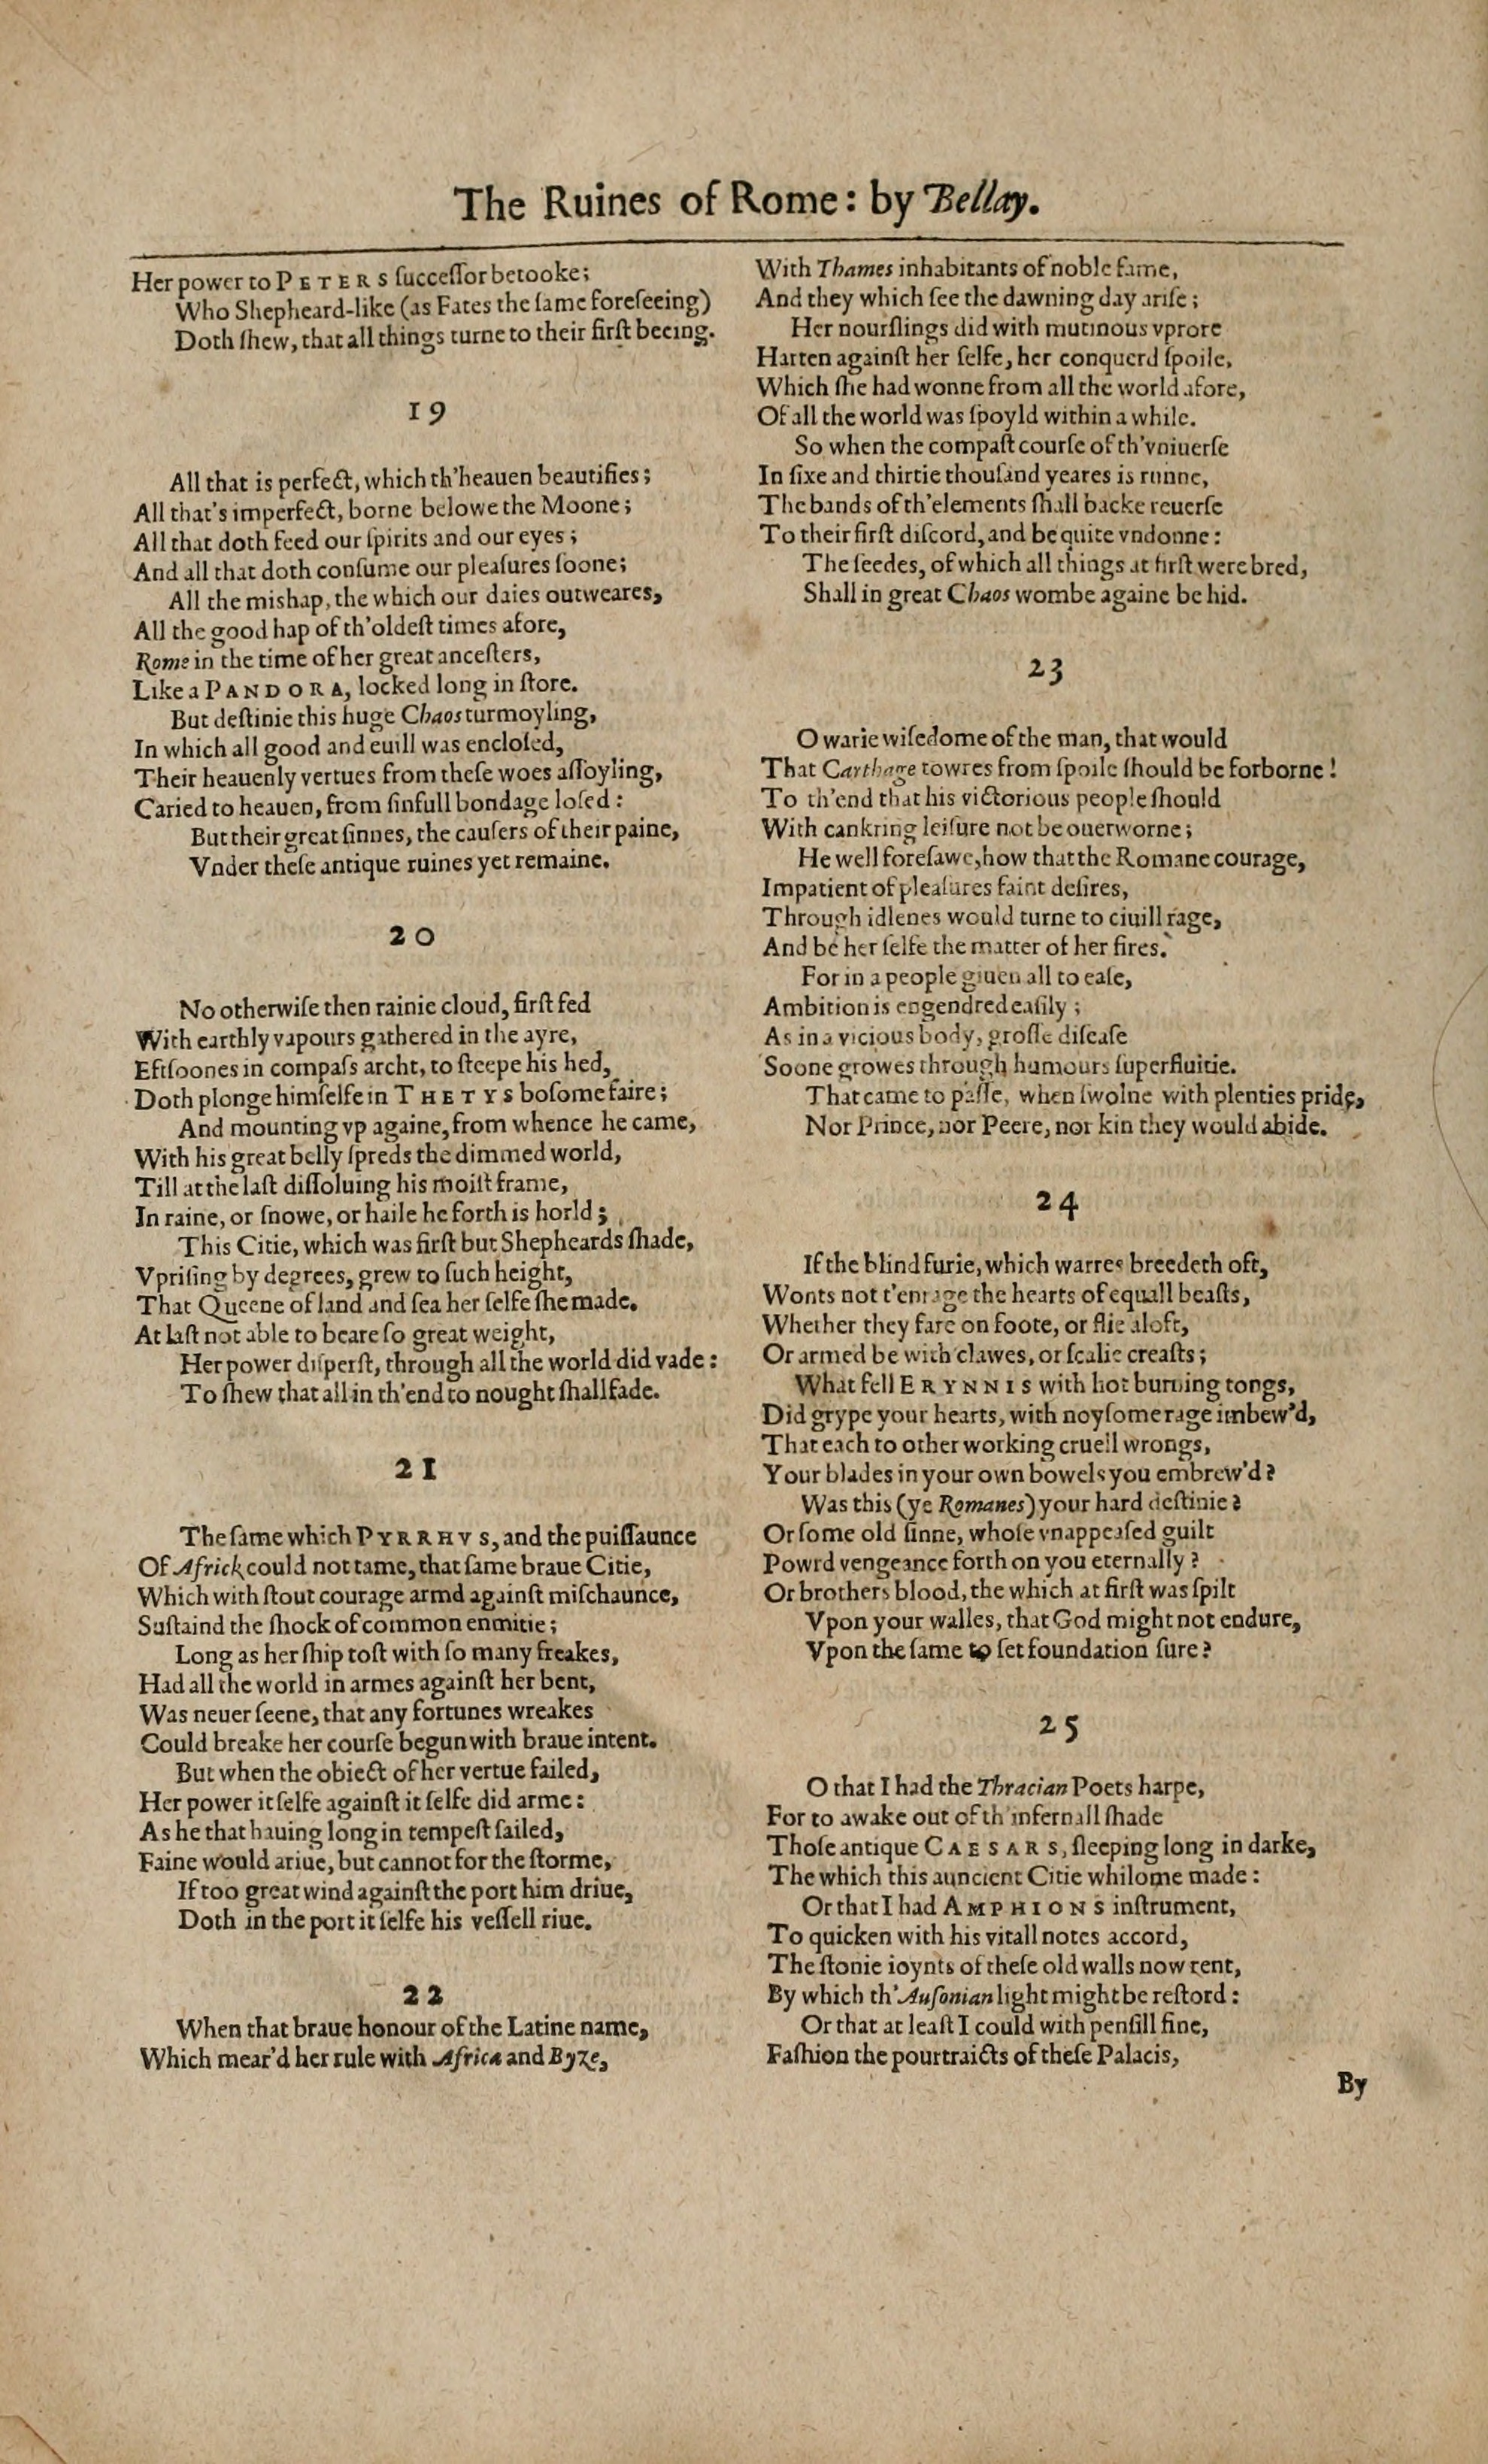 The Ruines of Rome: by Bellay.
Her power to PETERS ſucceſſor betooke;
Who Shepheard-like (as Fates the ſame foreſeeing)
Doth ſhew, that all things turne to their firſt beeing.
19
All that is perfect, which th'heauen beautifies;
All that's imperfect, borne belowe the Moone;
All that doth feed our ſpirits and our eyes;
And all that doth conſume our pleaſures ſoone;
All the mishap, the which our daies outweares,
All the good hap of th'oldeſt times afore,
Rome in the time of her great anceſters,
Like a PANDORA, locked long in ſtore.
But deſtinie this huge Chaos turmoyling,
In which all good and euill was encloſed,
Their heauenly vertues from theſe woes aſſoyling,
Caried to heauen, from ſinfull bondage loſed:
But their great ſinnes, the cauſers of their paine,
Vnder theſe antique ruines yet remaine.
20
No otherwiſe then rainie cloud, firſt fed
With earthly vapours gathered in the ayre,
Eftſoones in compaſs archt, to ſteepe his hed,
Doth plonge himſelfe in THETYS boſome faire;
And mounting vp againe, from whence he came,
With his great belly ſpreds the dimmed world,
Till at the laſt diſſoluing his moiſt frame,
In raine, or ſnowe, or haile he forth is horld;
This Citie, which was firſt but Shepheards ſhade,
Vpriſing by degrees, grew to ſuch height,
That Queene of land and ſea her ſelfe ſhe made.
At laſt not able to beare ſo great weight,
Her power diſperſt, through all the world did vade:
To ſhew that all in th'end to nought ſhall fade.
21
The ſame which PYRRHVS, and the puiſſaunce
Of Africk could not tame, that ſame braue Citie,
Which with ſtout courage armd againſt miſchaunce,
Suſtaind the ſhock of common enmitie;
Long as her ſhip toſt with ſo many freakes,
Had all the world in armes againſt her bent,
Was neuer ſeene, that any fortunes wreakes
Could breake her courſe begun with braue intent.
But when the obiect of her vertue failed,
Her power it ſelfe againſt it ſelfe did arme:
As he that hauing long in tempeſt ſailed,
Faine would ariue, but cannot for the ſtorme,
If too great wind againſt the port him driue,
Doth in the port it ſelfe his veſſell riue.
22
When that braue honour of the Latine name,
Which mear'd her rule with Africa and Byze,
With Thames inhabitants of noble fame,
And they which ſee the dawning day ariſe;
Her nourſlings did with mutinous vprore
Harten againſt her ſelfe, her conquerd ſpoile,
Which ſhe had wonne from all the world afore,
Of all the world was ſpoyld within a while.
So when the compaſt courſe of th'vniuerſe
In ſixe and thirtie thouſand yeares is runne,
The bands of th'elements ſhall backe reuerſe
To their firſt diſcord, and be quite vndonne:
The ſeedes, of which all things at firſt were bred,
Shall in great Chaos wombe againe be hid.
23
O warie wiſedome of the man, that would
That Carthage towres from ſpoile ſhould be forborne!
To th'end that his victorious people ſhould
With cankring leiſure not be ouerworne;
He well foreſawe, how that the Romane courage,
Impatient of pleaſures faint deſires,
Through idlenes would turne to ciuill rage,
And be her ſelfe the matter of her fires.
For in a people giuen all to eaſe,
Ambition is engendred eaſily;
As in a vicious body, groſſe diſeaſe
Soone growes through humours ſuperfluitie.
That came to paſſe, when ſwolne with plenties pride,
Nor Prince, nor Peere, nor kin they would abide.
24
If the blind furie, which warres breedeth oft,
Wonts not t'enrage the hearts of equall beaſts,
Whether they fare on foote, or flie aloft,
Or armed be with clawes, or ſcalie creaſts;
What fell ERYNNIS with hot burning tongs,
Did grype your hearts, with noyſome rage imbew'd,
That each to other working cruell wrongs,
Your blades in your own bowels you embrew'd?
Was this (ye Romanes) your hard deſtinie?
Or ſome old ſinne, whoſe vnappeaſed guilt
Powrd vengeance forth on you eternally?
Or brothers blood, the which at firſt was ſpilt
Vpon your walles, that God might not endure,
Vpon the ſame to ſet foundation ſure?
25
O that I had the Thracian Poets harpe,
For to awake out of th'infernall ſhade
Thoſe antique CAESARS, ſleeping long in darke,
The which this auncient Citie whilome made:
Or that I had AMPHIONS inſtrument,
To quicken with his vitall notes accord,
The ſtonie ioynts of theſe old walls now rent,
By which th'Auſonian light might be reſtord:
Or that at leaſt I could with penſill fine,
Faſhion the pourtraicts of theſe Palacis,
By